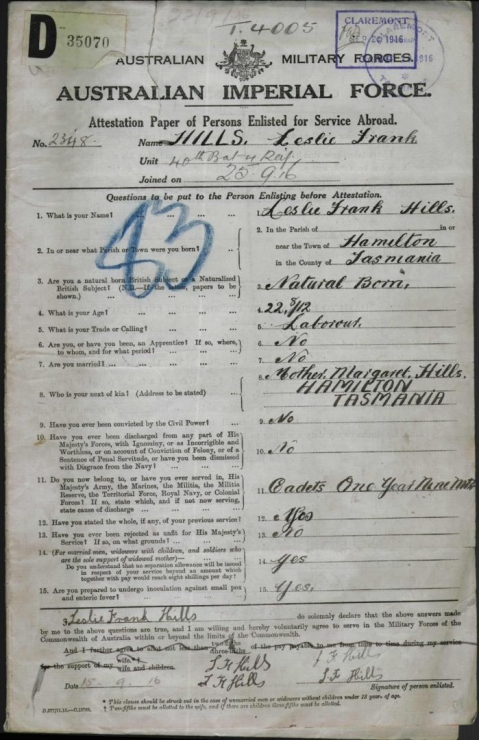 D 35070
T.4005
CLAREMONT.
SEP 20 1916
CLAREMONT
AUSTRALIAN MILITARY FORCES.
AUSTRALIAN IMPERIAL FORCE.
Attestation Paper of Persons Enlisted for Service Abroad.
No. 2348. Name HILLS, Leslie Frank
Unit 40th Batn
Joined on 20 9 16
Questions to be put to the Person Enlisting before Attestation.
43
1. What is your Name? ... 1. Leslie Frank Hills.
2. In or near what Parish or Town were you born? ... 2. In the Parish of in or
near the Town of Hamilton
in the County of Tasmania
3. Are you a natural born British Subject or a Naturalized
British Subject? (N.B.—If the latter, papers to be
shown.) ... 3. Natural Born.
4. What is your Age? ... 4. 22 5/12
5. What is your Trade or Calling? ... 5. Labourer.
6. Are you, or have you been, an Apprentice? If so, where,
to whom, and for what period? ... 6. No
7. Are you married? ... 7. No
8. Who is your next of kin? (Address to be stated) ... 8. Mother, Margaret Hills.
HAMILTON
TASMANIA
9. Have you ever been convicted by the Civil Power? ... 9. No
10. Have you ever been discharged from any part of His
Majesty's Forces, with Ignominy, or as Incorrigible and
Worthless, or on account of Conviction of Felony, or of a
Sentence of Penal Servitude, or have you been dismissed
with Disgrace from the Navy? ... 10. No
11. Do you now belong to, or have you ever served in, His
Majesty's Army, the Marines, the Militia, the Militia
Reserve, the Territorial Force, Royal Navy, or Colonial
Forces? If so, state which, and if not now serving,
state cause of discharge ... 11. Cadets One Year Nine Mths
12. Have you stated the whole, if any, of your previous service? 12. Yes
13. Have you ever been rejected as unfit for His Majesty's
Service? If so, on what grounds? ... 13. No
14. (For married men, widowers with children, and soldiers who
are the sole support of widowed mother—
Do you understand that no separation allowance will be issued
in respect of your service beyond an amount which
together with pay would reach eight shillings per day? 14. Yes
15. Are you prepared to undergo inoculation against small pox
and enteric fever? 15. Yes.
I, Leslie Frank Hills do solemnly declare that the above answers made
by me to the above questions are true, and I am willing and hereby voluntarily agree to serve in the Military Forces of the
Commonwealth of Australia within or beyond the limits of the Commonwealth.
And I further agree to allot not less than of the pay payable to me from time to time during my service
for the support of my wife. wife and children. L F Hills L F Hills
L F Hills L F Hills
Date 15 9 16 Signature of person enlisted.
* This clause should be struck out in the case of unmarried men or widowers without children under 18 years of age.
† Two-fifths must be allotted to the wife, and if there are children three-fifths must be allotted.